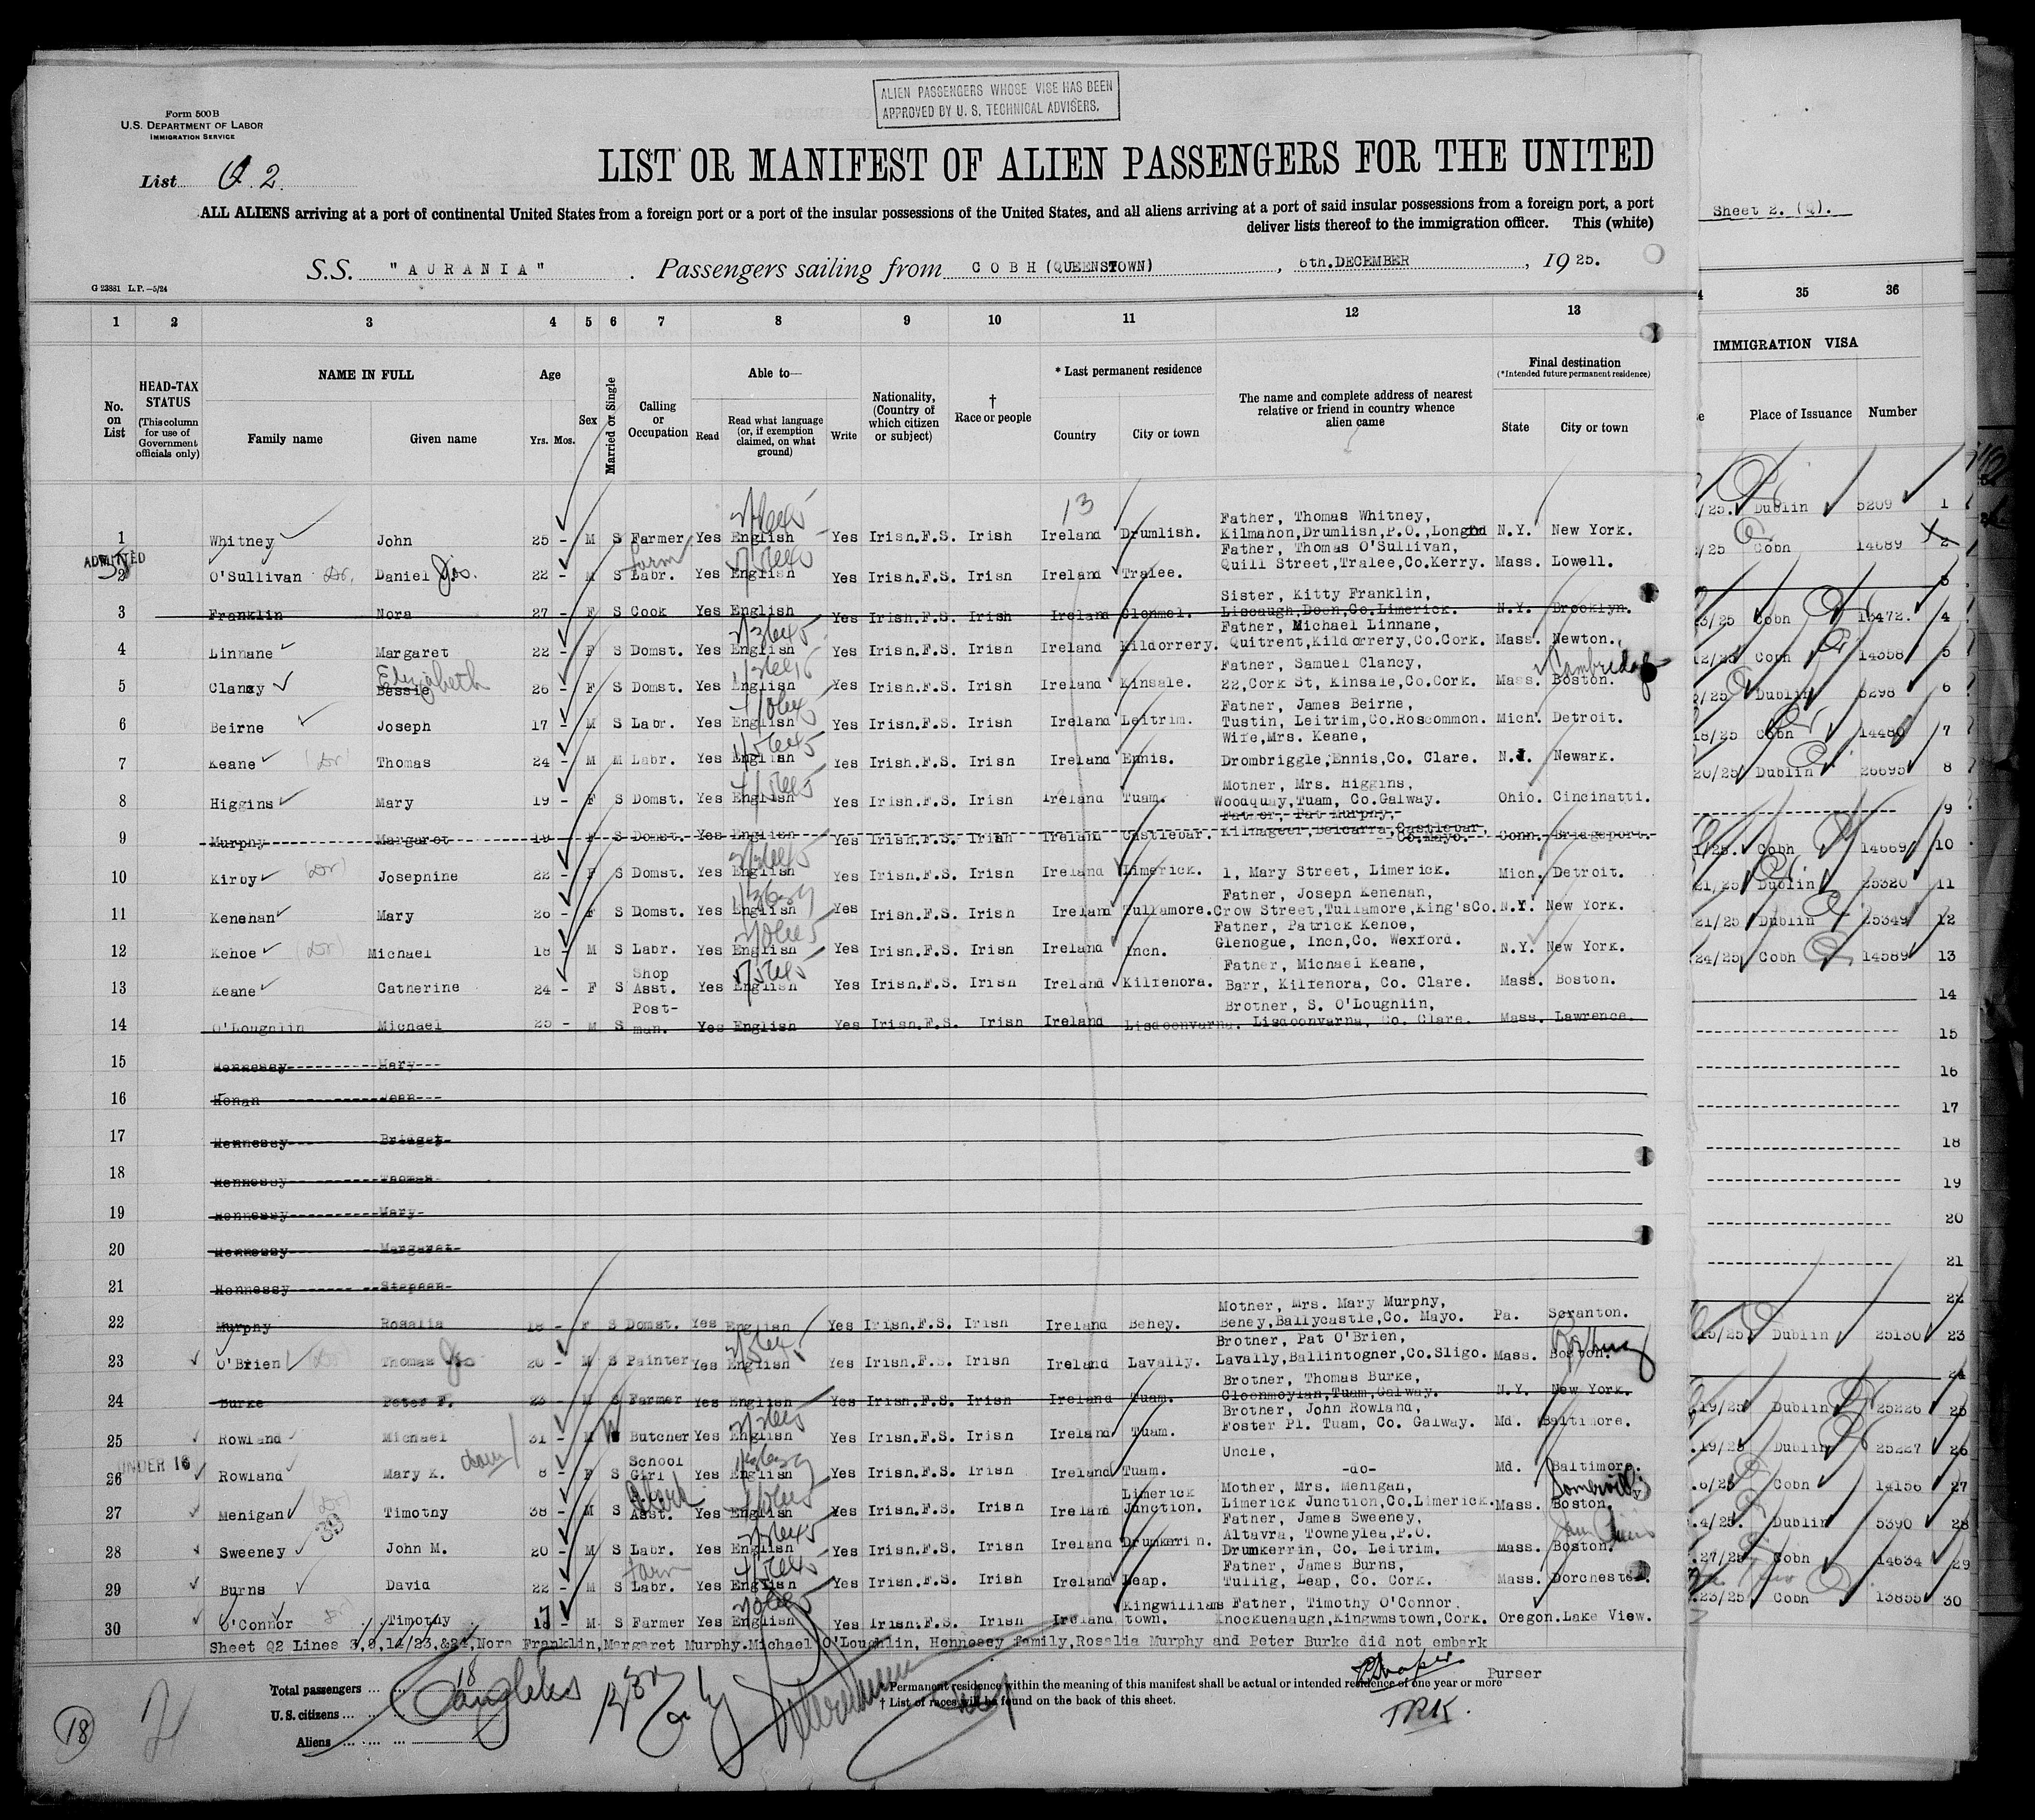 ALIEN PASSENGERS WHOSE VISE HAS BEEN
APPROVED BY U. S. TECHNICAL ADVISERS.
Form 500 B
U.S. DEPARTMENT OF LABOR
IMMIGRATION SERVICE
List Q 2.
LIST OR MANIFEST OF ALIEN PASSENGERS FOR THE UNITED
ALL ALIENS arriving at a port of continental United States from a foreign port or a port of the insular possessions of the United States, and all aliens arriving at a port of said insular possessions from a foreign port, a port
deliver lists thereof to the immigration officer. This (white)
Sheet 2. (Q).
S.S. "AURANIA". Passengers sailing from COBH (QUEENSTOWN), 6th. DECEMBER, 1925.
G 23881 L.P.—5/24
1 2 3 4 5 6 7 8 9 10 11 12 13
35 36
No. on List
HEAD-TAX STATUS
(This column for use of Government officials only)
NAME IN FULL
Family name Given name
Age
Yrs. Mos.
Sex
Married or Single
Calling or Occupation
Able to—
Read
Read what language (or, if exemption claimed, on what ground)
Write
Nationality, (Country of which citizen or subject)
† Race or people
* Last permanent residence
Country City or town
The name and complete address of nearest relative or friend in country whence alien came
Final destination
(*Intended future permanent residence)
State City or town
IMMIGRATION VISA
Place of Issuance Number
13
1 Whitney John 25 - M S Farmer Yes English Yes Irish.F.S. Irish Ireland Drumlish. Father, Thomas Whitney, Kilmahon,Drumlish,P.O.,Longfd N.Y. New York.
ADMITTED
2 O'Sullivan Dr, Daniel Jos. 22 - M S Farm Labr. Yes English Yes Irish.F.S. Irish Ireland Tralee. Father, Thomas O'Sullivan, Quill Street,Tralee,Co.Kerry. Mass. Lowell.
3 Franklin Nora 27 - F S Cook Yes English Yes Irish.F.S. Irish Ireland Clonmel. Sister, Kitty Franklin, Liscaugh,Doon,Co.Limerick. N.Y. Brooklyn.
4 Linnane Margaret 22 - F S Domst. Yes English Yes Irish.F.S. Irish Ireland Kildorrery. Father, Michael Linnane, Quitrent,Kildorrery,Co.Cork. Mass. Newton.
5 Clancy Bessie Elizabeth 26 - F S Domst. Yes English Yes Irish.F.S. Irish Ireland Kinsale. Father, Samuel Clancy, 22,Cork St, Kinsale,Co.Cork. Mass. Boston. Cambridge
6 Beirne Joseph 17 - M S Labr. Yes English Yes Irish.F.S. Irish Ireland Leitrim. Father, James Beirne, Tustin, Leitrim,Co.Roscommon. Mich. Detroit.
7 Keane (Dr) Thomas 24 - M M Labr. Yes English Yes Irish.F.S. Irish Ireland Ennis. Wife,Mrs. Keane, Drombriggle,Ennis,Co. Clare. N.J. Newark.
8 Higgins Mary 19 - F S Domst. Yes English Yes Irish.F.S. Irish Ireland Tuam. Mother, Mrs. Higgins, Woodquay,Tuam, Co.Galway. Ohio. Cincinatti.
9 Murphy Margaret 19 - F S Domst. Yes English Yes Irish.F.S. Irish Ireland Castlebar. Father, Pat Murphy, Kilnageer,Belcarra,Castlebar, Co.Mayo. Conn. Bridgeport.
10 Kirby (Dr) Josephine 22 - F S Domst. Yes English Yes Irish.F.S. Irish Ireland Limerick. 1, Mary Street, Limerick. Mich. Detroit.
11 Kenehan Mary 26 - F S Domst. Yes English Yes Irish.F.S. Irish Ireland Tullamore. Father, Joseph Kenehan, Crow Street,Tullamore,King'sCo. N.Y. New York.
12 Kehoe (Dr) Michael 18 - M S Labr. Yes English Yes Irish.F.S. Irish Ireland Inch. Father, Patrick Kehoe, Glenogue, Inch,Co. Wexford. N.Y. New York.
13 Keane Catherine 24 - F S Shop Asst. Yes English Yes Irish.F.S. Irish Ireland Kilfenora. Father, Michael Keane, Barr, Kilfenora, Co. Clare. Mass. Boston.
14 O'Loughlin Michael 25 - M S Post-man. Yes English Yes Irish.F.S. Irish Ireland Lisdoonvarna. Brother, S. O'Loughlin, Lisdoonvarna, Co. Clare. Mass. Lawrence.
15 Hennessy Mary
16 Honan
17 Hennessy Bridget
18 Hennessy Thomas
19 Hennessy Mary
20 Hennessy Margaret
21 Hennessy Stephen
22 Murphy Rosalia 18 - F S Domst. Yes English Yes Irish.F.S. Irish Ireland Behey. Mother, Mrs. Mary Murphy, Behey,Ballycastle,Co. Mayo. Pa. Scranton.
23 O'Brien (Dr) Thomas Jos 20 - M S Painter Yes English Yes Irish.F.S. Irish Ireland Lavally. Brother, Pat O'Brien, Lavally,Ballintogher,Co.Sligo. Mass. Boston.
24 Burke Peter F. 23 - M S Farmer Yes English Yes Irish.F.S. Irish Ireland Tuam. Brother, Thomas Burke, Cloonmoylan,Tuam,Galway. N.Y. New York.
25 Rowland Michael 31 - M W Butcher Yes English Yes Irish.F.S. Irish Ireland Tuam. Brother, John Rowland, Foster Pl. Tuam, Co. Galway. Md. Baltimore.
UNDER 16
26 Rowland Mary K. 8 - F S School Girl Yes English Yes Irish.F.S. Irish Ireland Tuam. Uncle, -do- Md. Baltimore.
27 Menigan (Dr) Timothy 38 - M S Asst. Yes English Yes Irish.F.S. Irish Ireland Limerick Junction. Mother, Mrs. Menigan, Limerick Junction,Co.Limerick. Mass. Boston. Somerville
28 Sweeney 39 John M. 20 - M S Labr. Yes English Yes Irish.F.S. Irish Ireland Drumkerin. Father, James Sweeney, Altavra, Towneylea,P.O. Drumkerrin, Co. Leitrim. Mass. Boston.
29 Burns David 22 - M S Farm Labr. Yes English Yes Irish.F.S. Irish Ireland Leap. Father, James Burns, Tullig, Leap, Co. Cork. Mass. Dorchester.
30 O'Connor Dr Timothy 17 - M S Farmer Yes English Yes Irish.F.S. Irish Ireland Kingwilliams town. Father, Timothy O'Connor. Knockuenaugh,Kingwmstown,Cork. Oregon. Lake View.
Sheet Q2 Lines 3,9,14/23,&24,Nora Franklin,Margaret Murphy.Michael O'Loughlin, Hennessy family,Rosalia Murphy and Peter Burke did not embark
/25. Dublin 5209 1
/25 Cobh 14689 2
3
3/25 Cobh 13472. 4
12/25 Cobh 14358 5
2/25 Dublin 5298 6
18/25 Cobh 14480 7
20/25 Dublin 26695 8
9
1/25. Cobh 14669 10
21/25 Dublin 25320 11
21/25 Dublin 25349 12
24/25 Cobh 14589 13
14
15
16
17
18
19
20
21
22
15/25 Dublin 25130 23
24
19/25 Dublin 25226 25
.19/25 Dublin 25227 26
.6/25 Cobh 14156 27
.4/25. Dublin 5390 28
.27/25 Cobh 14634 29
.23/25 Cobh 13855 30
Total passengers ... ... 18
U.S. citizens ... ... ...
Aliens ... ... ...
* Permanent residence within the meaning of this manifest shall be actual or intended residence of one year or more
† List of races will be found on the back of this sheet.
Purser
TRK.
18
21